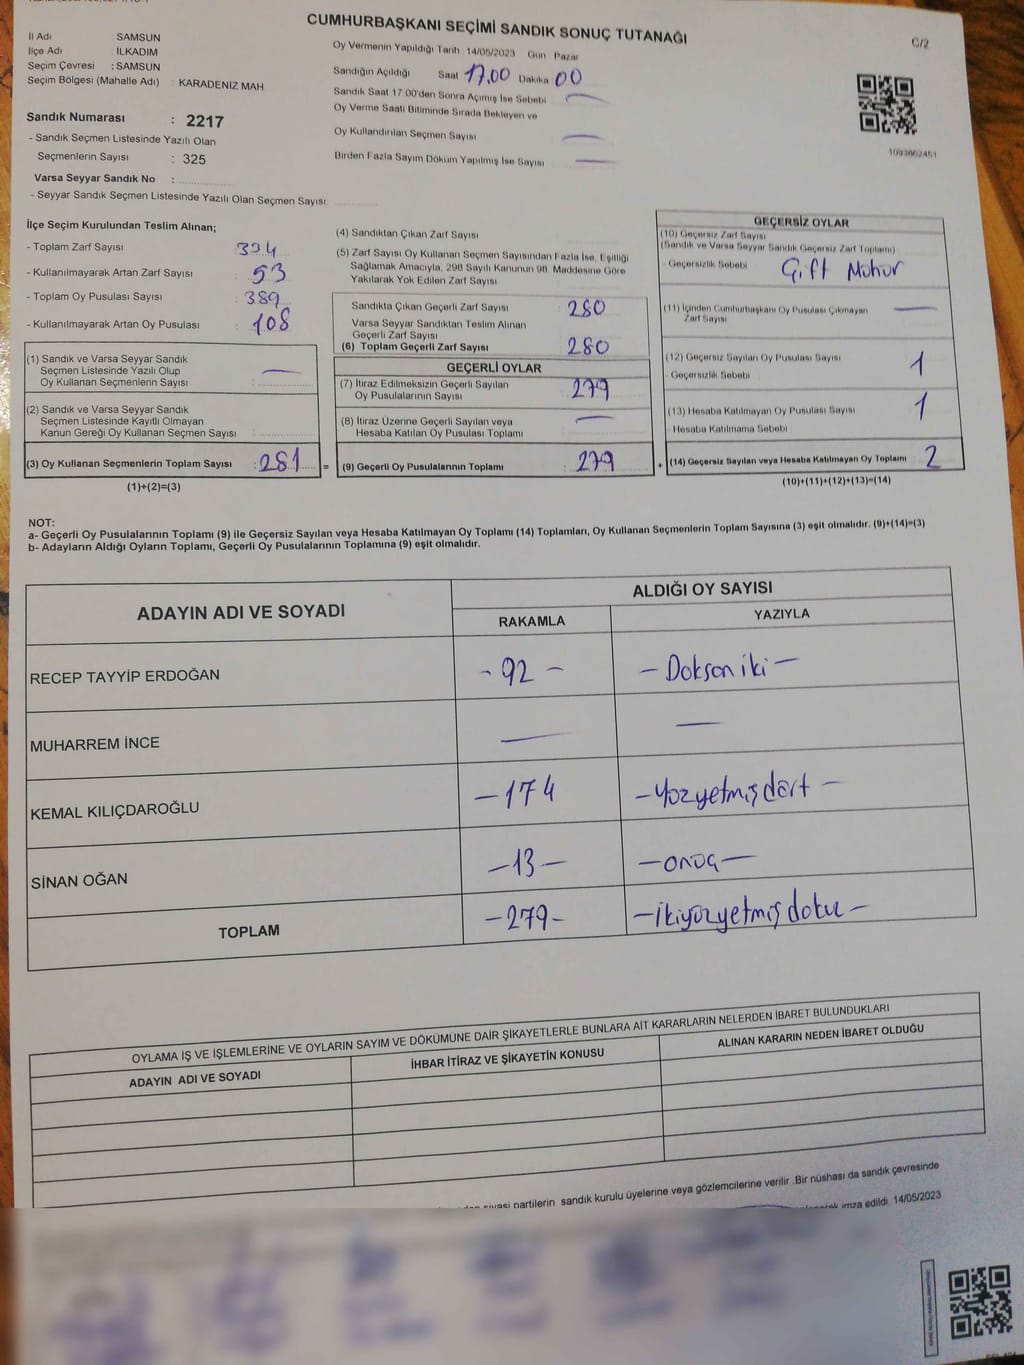 CUMHURBAŞKANI SEÇİMİ SANDIK SONUÇ TUTANAĞI
C/2
İl Adı : SAMSUN
İlçe Adı : İLKADIM
Seçim Çevresi : SAMSUN
Seçim Bölgesi (Mahalle Adı) : KARADENİZ MAH
Sandık Numarası : 2217
- Sandık Seçmen Listesinde Yazılı Olan
Seçmenlerin Sayısı : 325
Varsa Seyyar Sandık No :
- Seyyar Sandık Seçmen Listesinde Yazılı Olan Seçmen Sayısı:
Oy Vermenin Yapıldığı Tarih 14/05/2023 Gün Pazar
Sandığın Açıldığı Saat 17.00 Dakika 00
Sandık Saat 17 00'den Sonra Açımış İse Sebebi
Oy Verme Saati Bitiminde Sırada Bekleyen ve
Oy Kullandırılan Seçmen Sayısı
Birden Fazla Sayım Döküm Yapılmış İse Sayısı
1093862451
İlçe Seçim Kurulundan Teslim Alınan;
- Toplam Zarf Sayısı : 334
- Kullanılmayarak Artan Zarf Sayısı : 53
- Toplam Oy Pusulası Sayısı : 389
- Kullanılmayarak Artan Oy Pusulası : 108
(1) Sandık ve Varsa Seyyar Sandık
Seçmen Listesinde Yazılı Olup
Oy Kullanan Seçmenlerin Sayısı
(2) Sandık ve Varsa Seyyar Sandık
Seçmen Listesinde Kayıtlı Olmayan
Kanun Gereği Oy Kullanan Seçmen Sayısı
(3) Oy Kullanan Seçmenlerin Toplam Sayısı : 281 =
(1)+(2)=(3)
(4) Sandıktan Çıkan Zarf Sayısı
(5) Zarf Sayısı Oy Kullanan Seçmen Sayısından Fazla İse, Eşitliği
Sağlamak Amacıyla, 298 Sayılı Kanunun 98. Maddesine Göre
Yakılarak Yok Edilen Zarf Sayısı
Sandıkta Çıkan Geçerli Zarf Sayısı 280
Varsa Seyyar Sandıktan Teslim Alınan
Geçerli Zarf Sayısı
(6) Toplam Geçerli Zarf Sayısı 280
GEÇERLİ OYLAR
(7) İtiraz Edilmeksizin Geçerli Sayılan
Oy Pusulalarının Sayısı 279
(8) İtiraz Üzerine Geçerli Sayılan veya
Hesaba Katılan Oy Pusulası Toplamı
(9) Geçerli Oy Pusulalarının Toplamı : 279 +
GEÇERSİZ OYLAR
(10) Geçersiz Zarf Sayısı
(Sandık ve Varsa Seyyar Sandık Geçersiz Zarf Toplamı)
- Geçersizlik Sebebi Çift Mühür
(11) İçinden Cumhurbaşkanı Oy Pusulası Çıkmayan
Zarf Sayısı
(12) Geçersiz Sayılan Oy Pusulası Sayısı 1
- Geçersizlik Sebebi
(13) Hesaba Katılmayan Oy Pusulası Sayısı 1
- Hesaba Katılmama Sebebi
(14) Geçersiz Sayılan veya Hesaba Katılmayan Oy Toplamı 2
(10)+(11)+(12)+(13)=(14)
NOT:
a- Geçerli Oy Pusulalarının Toplamı (9) ile Geçersiz Sayılan veya Hesaba Katılmayan Oy Toplamı (14) Toplamları, Oy Kullanan Seçmenlerin Toplam Sayısına (3) eşit olmalıdır. (9)+(14)=(3)
b- Adayların Aldığı Oyların Toplamı, Geçerli Oy Pusulalarının Toplamına (9) eşit olmalıdır.
ADAYIN ADI VE SOYADI
ALDIĞI OY SAYISI
RAKAMLA YAZIYLA
RECEP TAYYİP ERDOĞAN - 92 - - Doksaniki -
MUHARREM İNCE
KEMAL KILIÇDAROĞLU - 174 - Yüzyetmişdört -
SİNAN OĞAN - 13 - - onüç -
TOPLAM - 279 - - ikiyüzyetmişdoku -
OYLAMA İŞ VE İŞLEMLERİNE VE OYLARIN SAYIM VE DÖKÜMÜNE DAİR ŞİKAYETLERLE BUNLARA AİT KARARLARIN NELERDEN İBARET BULUNDUKLARI
ADAYIN ADI VE SOYADI
İHBAR İTİRAZ VE ŞİKAYETİN KONUSU
ALINAN KARARIN NEDEN İBARET OLDUĞU
siyasi partilerin sandık kurulu üyelerine veya gözlemcilerine verilir. Bir nüshası da sandık çevresinde
imza edildi. 14/05/2023